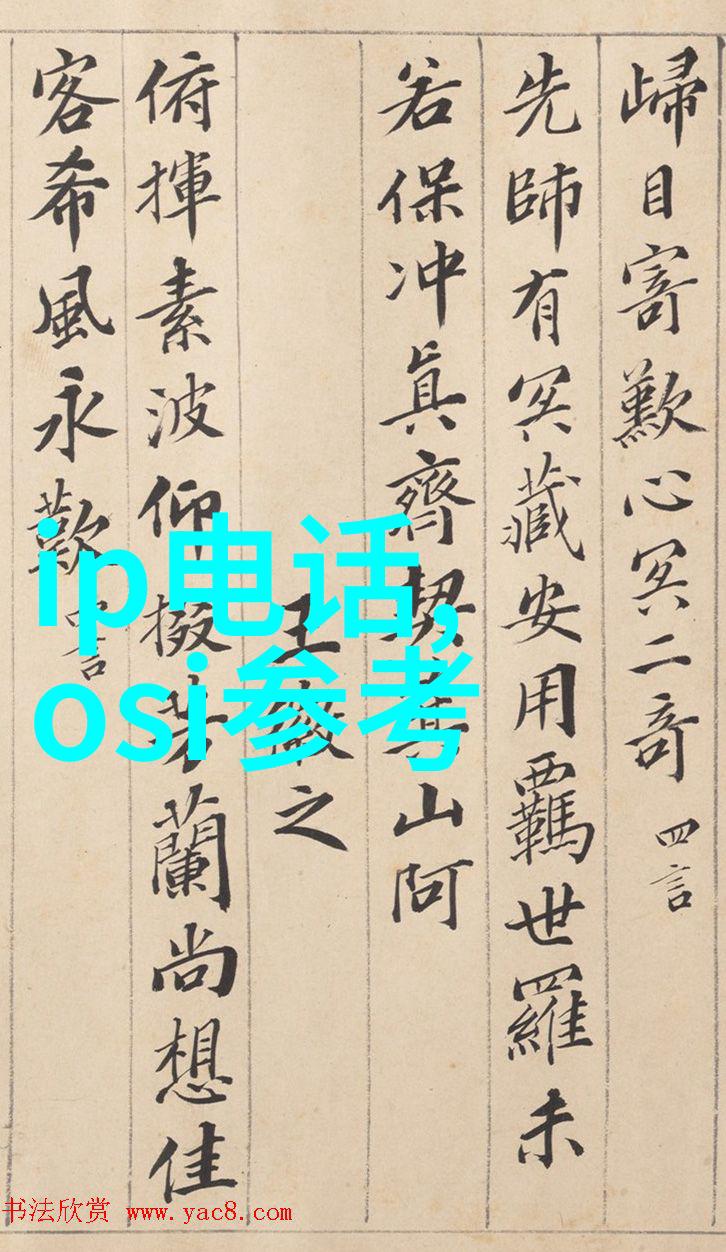 歸目寄歎心冥二奇 四言
先師有冥藏安用羈世羅未
若保冲真齊契箕山阿
王徽之
俯揮素波仰掇芳蘭尚想佳
客希風永歎 四言
ip电话,
osi参考
书法欣赏 www.yac8.com